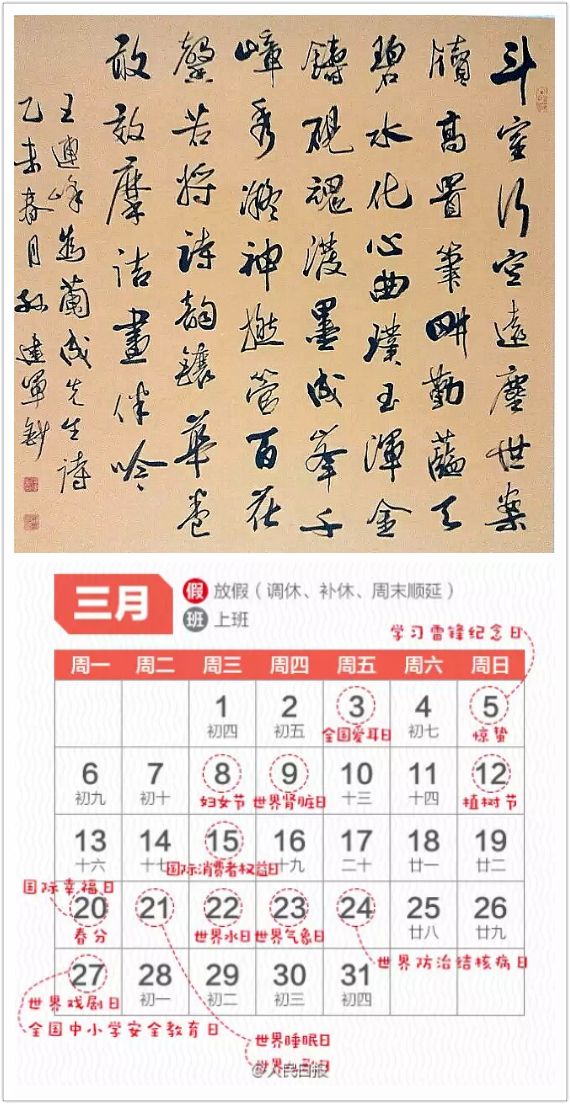 斗室行空遠塵世案
牘高置筆畊勤蘊天
碧水化心曲璞玉渾金
鑄硯魂潑墨成峯千
嶂秀凝神撚管百花
馨若将詩韵鑲華卷
敢效摩詰畫伴吟
王連峰為蘭成先生詩
乙未春月孙建軍鈔
三月
假 放假（调休、补休、周末顺延）
班 上班
学习雷锋纪念日
周一 周二 周三 周四 周五 周六 周日
1 2 3 4 5
初四 初五 全国爱耳日 初七 惊蛰
6 7 8 9 10 11 12
初九 初十 妇女节 世界肾脏日 十三 十四 植树节
13 14 15 16 17 18 19
十六 十七 国际消费者权益日 十九 二十 廿一 廿二
国际幸福日
20 21 22 23 24 25 26
春分 世界水日 世界气象日 廿八 廿九
世界防治结核病日
27 28 29 30 31
初一 初二 初三 初四
世界戏剧日
全国中小学安全教育日
世界睡眠日
@人民日报